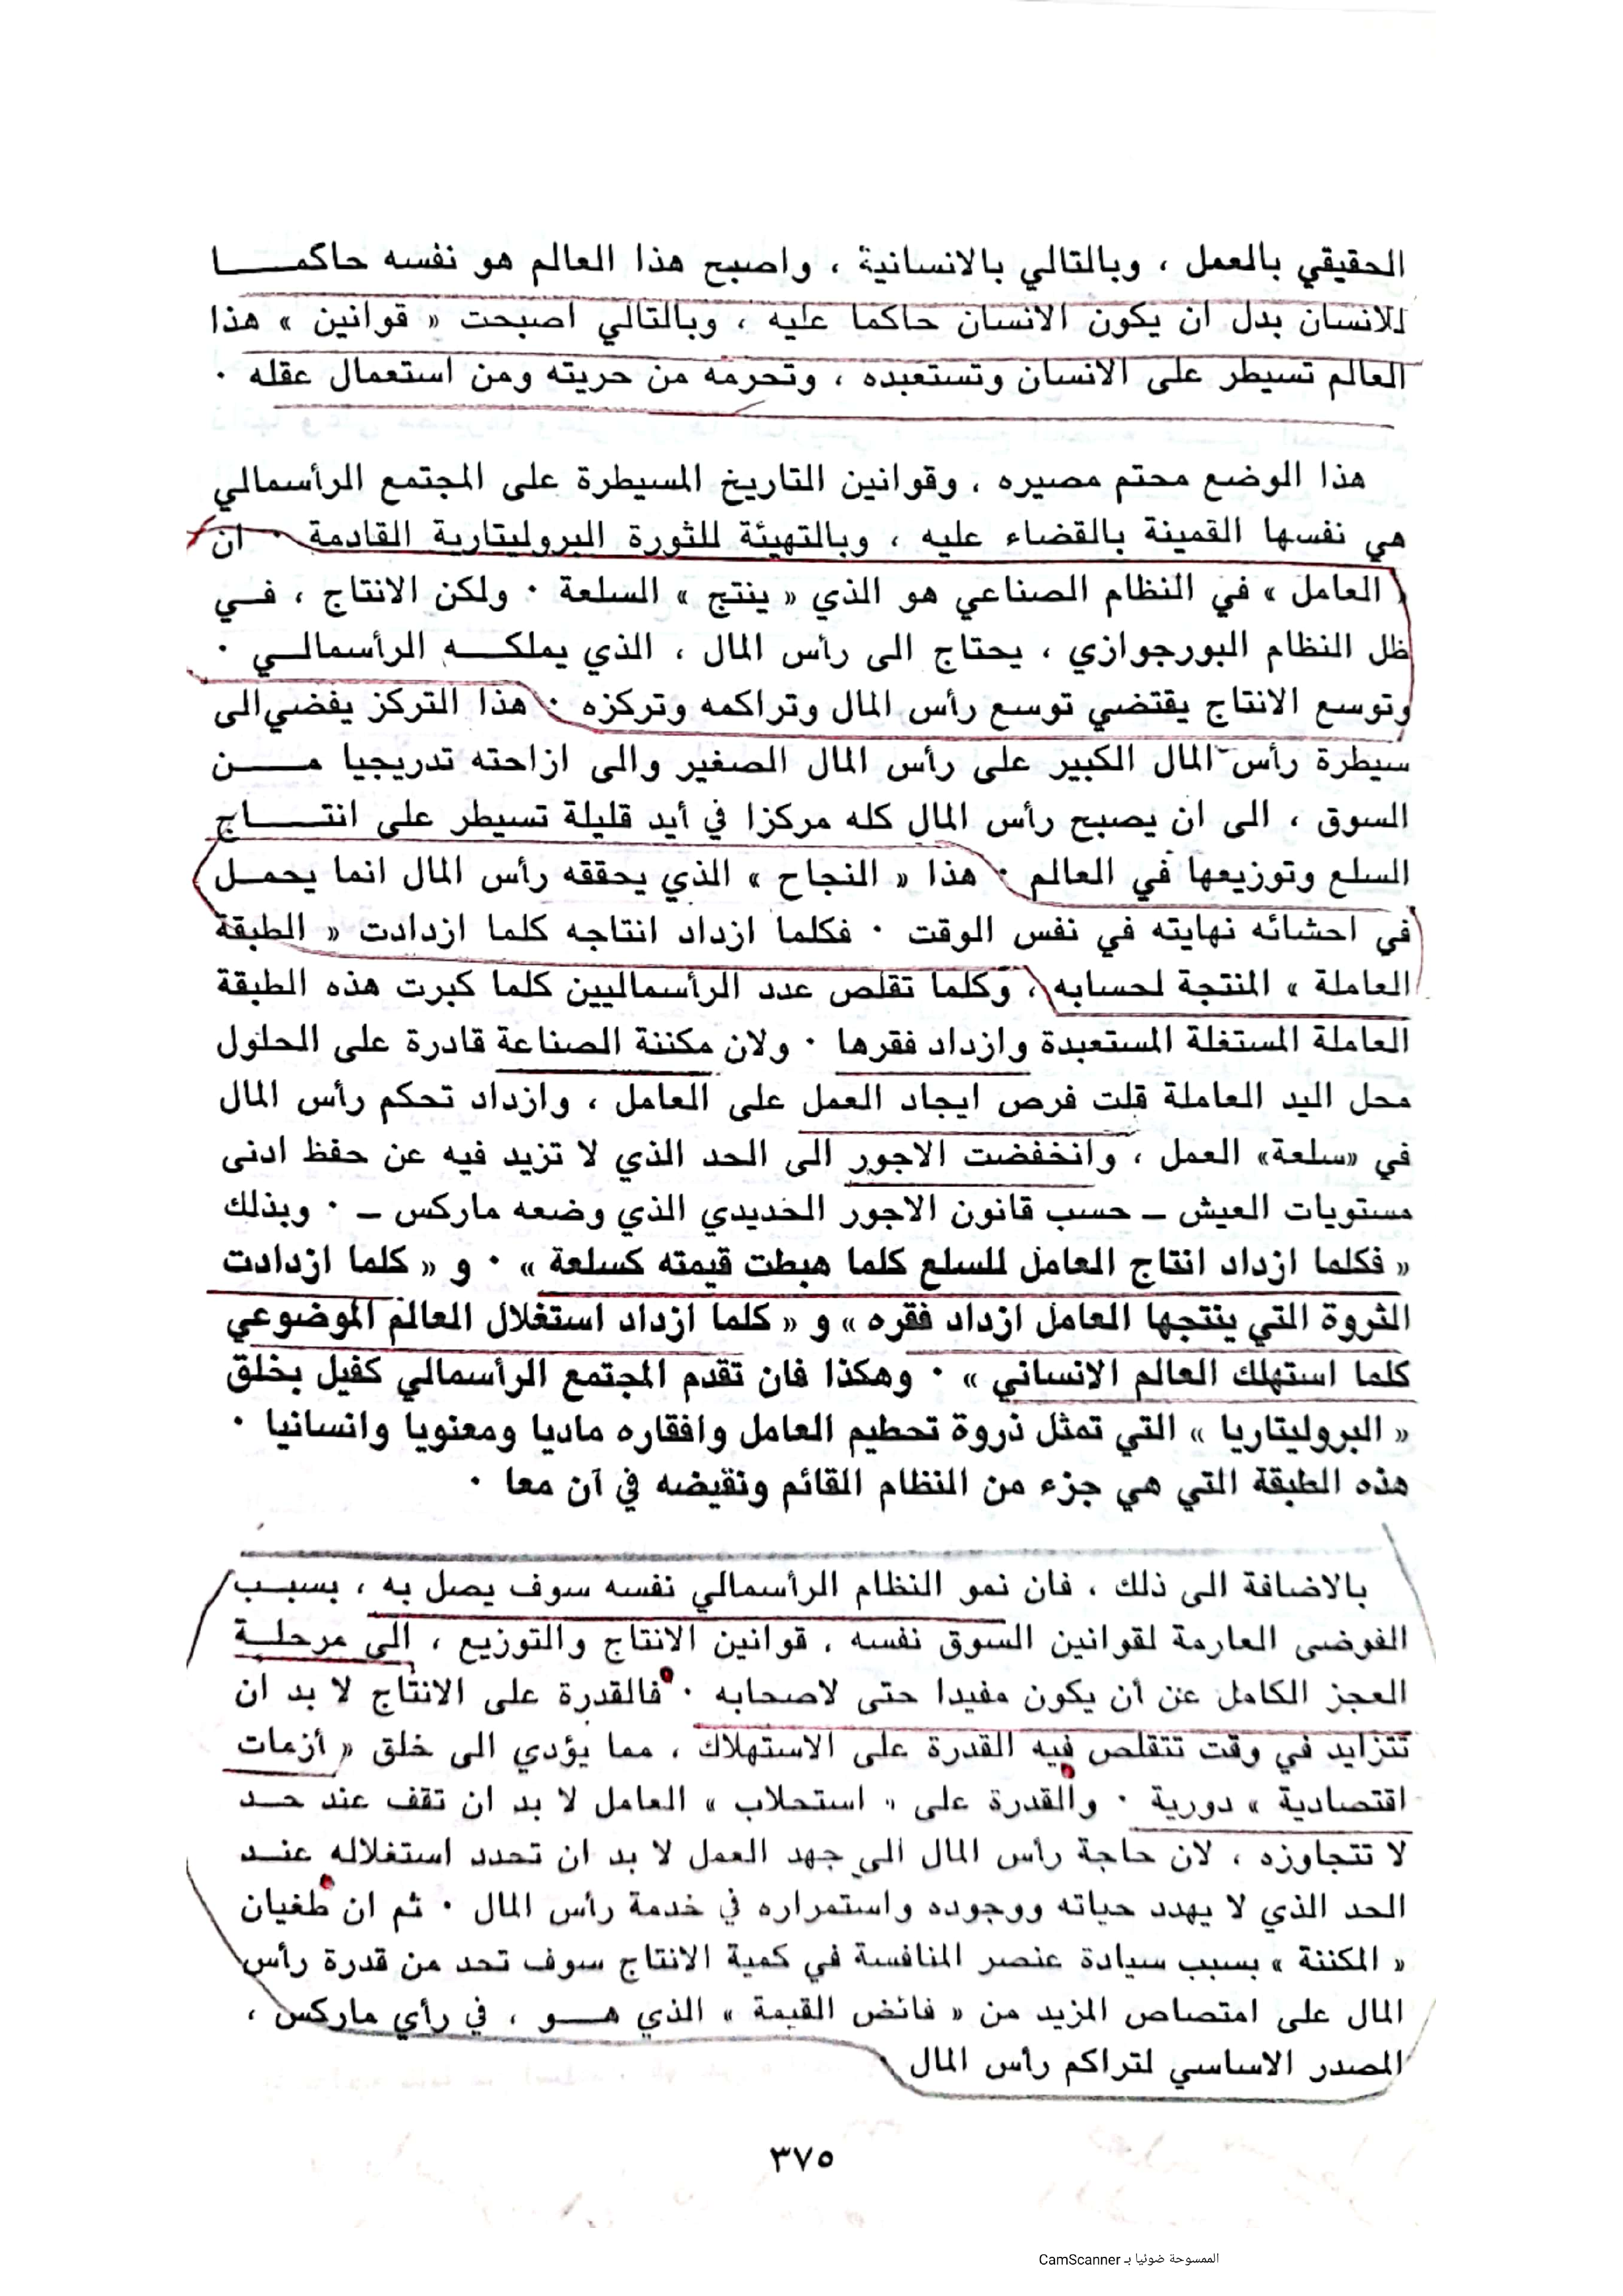 الحقيقي بالعمل ، وبالتالي بالانسانية ، واصبح هذا العالم هو نفسه حاكمـــا
للانسان بدل ان يكون الانسان حاكما عليه ، وبالتالي اصبحت « قوانين » هذا
العالم تسيطر على الانسان وتستعبده ، وتحرمه من حريته ومن استعمال عقله ٠
هذا الوضع محتم مصيره ، وقوانين التاريخ المسيطرة على المجتمع الرأسمالي
هي نفسها القمينة بالقضاء عليه ، وبالتهيئة للثورة البروليتارية القادمة ٠ ان
« العامل » في النظام الصناعي هو الذي « ينتج » السلعة ٠ ولكن الانتاج ، فـي
ظل النظام البورجوازي ، يحتاج الى رأس المال ، الذي يملكـــه الرأسمالـي ٠
وتوسع الانتاج يقتضي توسع رأس المال وتراكمه وتركزه ٠ هذا التركز يفضي الى
سيطرة رأس المال الكبير على رأس المال الصغير والى ازاحته تدريجيا مـــن
السوق ، الى ان يصبح رأس المال كله مركزا في أيد قليلة تسيطر على انتـــاج
السلع وتوزيعها في العالم ٠ هذا « النجاح » الذي يحققه رأس المال انما يحمـل
في احشائه نهايته في نفس الوقت ٠ فكلما ازداد انتاجه كلما ازدادت « الطبقة
العاملة » المنتجة لحسابه ، وكلما تقلص عدد الرأسماليين كلما كبرت هذه الطبقة
العاملة المستغلة المستعبدة وازداد فقرها ٠ ولان مكننة الصناعة قادرة على الحلول
محل اليد العاملة قلت فرص ايجاد العمل على العامل ، وازداد تحكم رأس المال
في «سلعة» العمل ، وانخفضت الاجور الى الحد الذي لا تزيد فيه عن حفظ ادنى
مستويات العيش ــ حسب قانون الاجور الحديدي الذي وضعه ماركس ــ ٠ وبذلك
« فكلما ازداد انتاج العامل للسلع كلما هبطت قيمته كسلعة » ٠ و « كلما ازدادت
الثروة التي ينتجها العامل ازداد فقره » و « كلما ازداد استغلال العالم الموضوعي
كلما استهلك العالم الانساني » ٠ وهكذا فان تقدم المجتمع الرأسمالي كفيل بخلق
« البروليتاريا » التي تمثل ذروة تحطيم العامل وافقاره ماديا ومعنويا وانسانيا ٠
هذه الطبقة التي هي جزء من النظام القائم ونقيضه في آن معا ٠
بالاضافة الى ذلك ، فان نمو النظام الرأسمالي نفسه سوف يصل به ، بسبـب
الفوضى العارمة لقوانين السوق نفسه ، قوانين الانتاج والتوزيع ، الى مرحلـة
العجز الكامل عن أن يكون مفيدا حتى لاصحابه ٠ فالقدرة على الانتاج لا بد ان
تتزايد في وقت تتقلص فيه القدرة على الاستهلاك ، مما يؤدي الى خلق « أزمات
اقتصادية » دورية ٠ والقدرة على « استحلاب » العامل لا بد ان تقف عند حـد
لا تتجاوزه ، لان حاجة رأس المال الى جهد العمل لا بد ان تحدد استغلاله عنـد
الحد الذي لا يهدد حياته ووجوده واستمراره في خدمة رأس المال ٠ ثم ان طغيان
« المكننة » بسبب سيادة عنصر المنافسة في كمية الانتاج سوف تحد من قدرة رأس
المال على امتصاص المزيد من « فائض القيمة » الذي هـــو ، في رأي ماركس ،
المصدر الاساسي لتراكم رأس المال
٣٧٥
الممسوحة ضوئيا بـ CamScanner